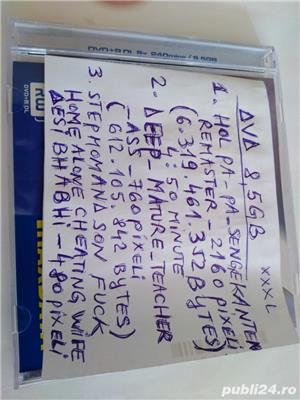 DVD+R DL 8x 240min / 8.5GB
XXXL
DVD 8,5GB
1. HOL PA-PA_SENGEKANTEN
REMASTER_2160 PIXELI
(6.349.461.352 BYTES)
4:50 MINUTE
2. DEEP_MATURE_TEACHER
-ASS_760 PIXELI
(612.105.842 BYTES)
3. STEPHOMANA SON FUCK
HOME ALONE CHEATING WIFE
DESI BHABHI - 480 PIXELI
publi24.ro